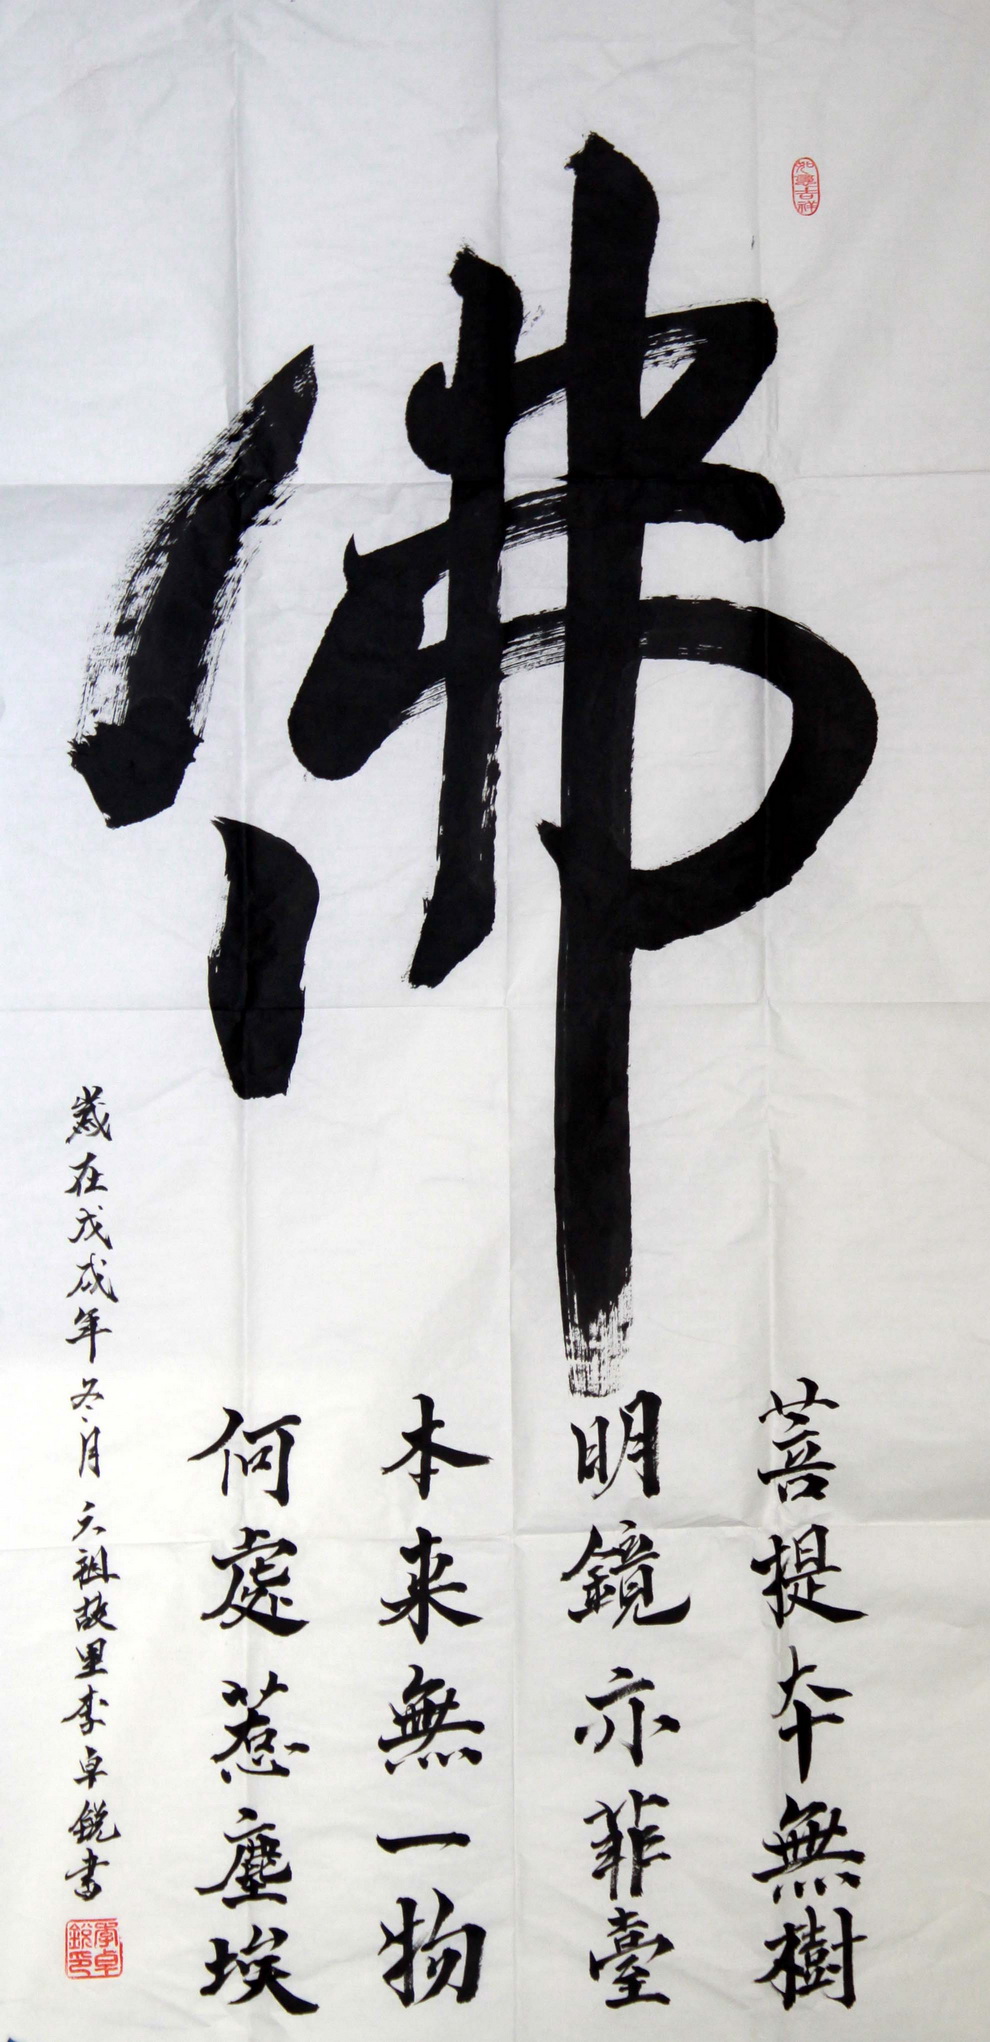 佛
菩提本無樹
明鏡亦菲臺
本来無一物
何處惹塵埃
歲在戊戌年冬月六祖故里李卓銳書
李卓銳印